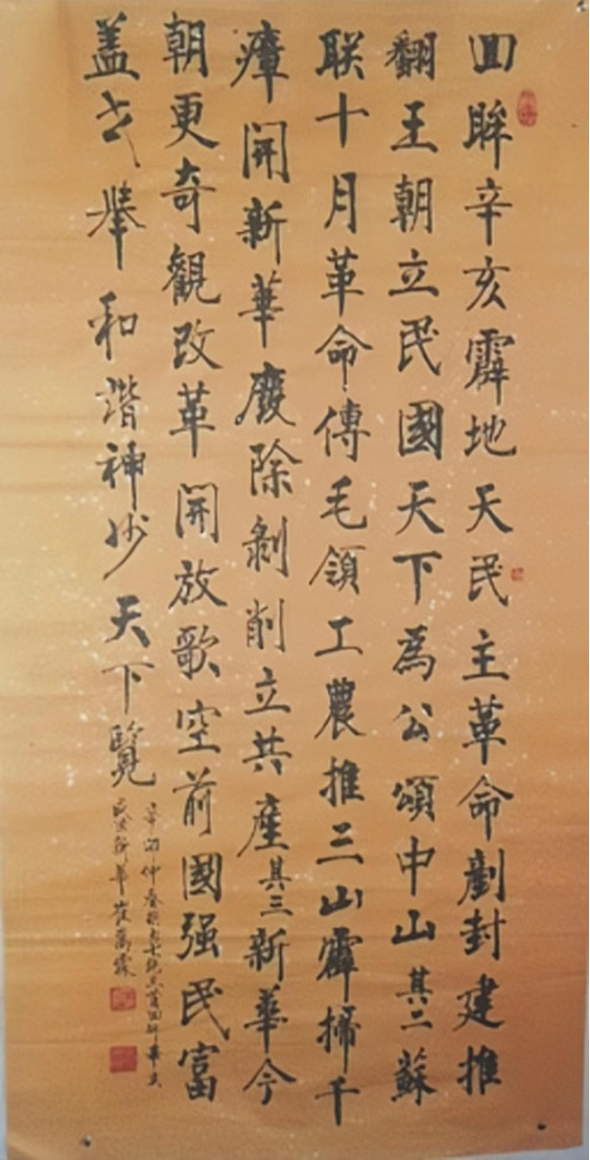 回眸辛亥霹地天民主革命劃封建推
翻王朝立民國天下為公頌中山其二蘇
联十月革命傳毛領工農推三山霹掃千
瘴開新華廢除剝削立共產其三新華今
朝更奇觀改革開放歌空前國强民富
盖世舉和谐神妙天下覽
辛卯仲春
崔萬霖